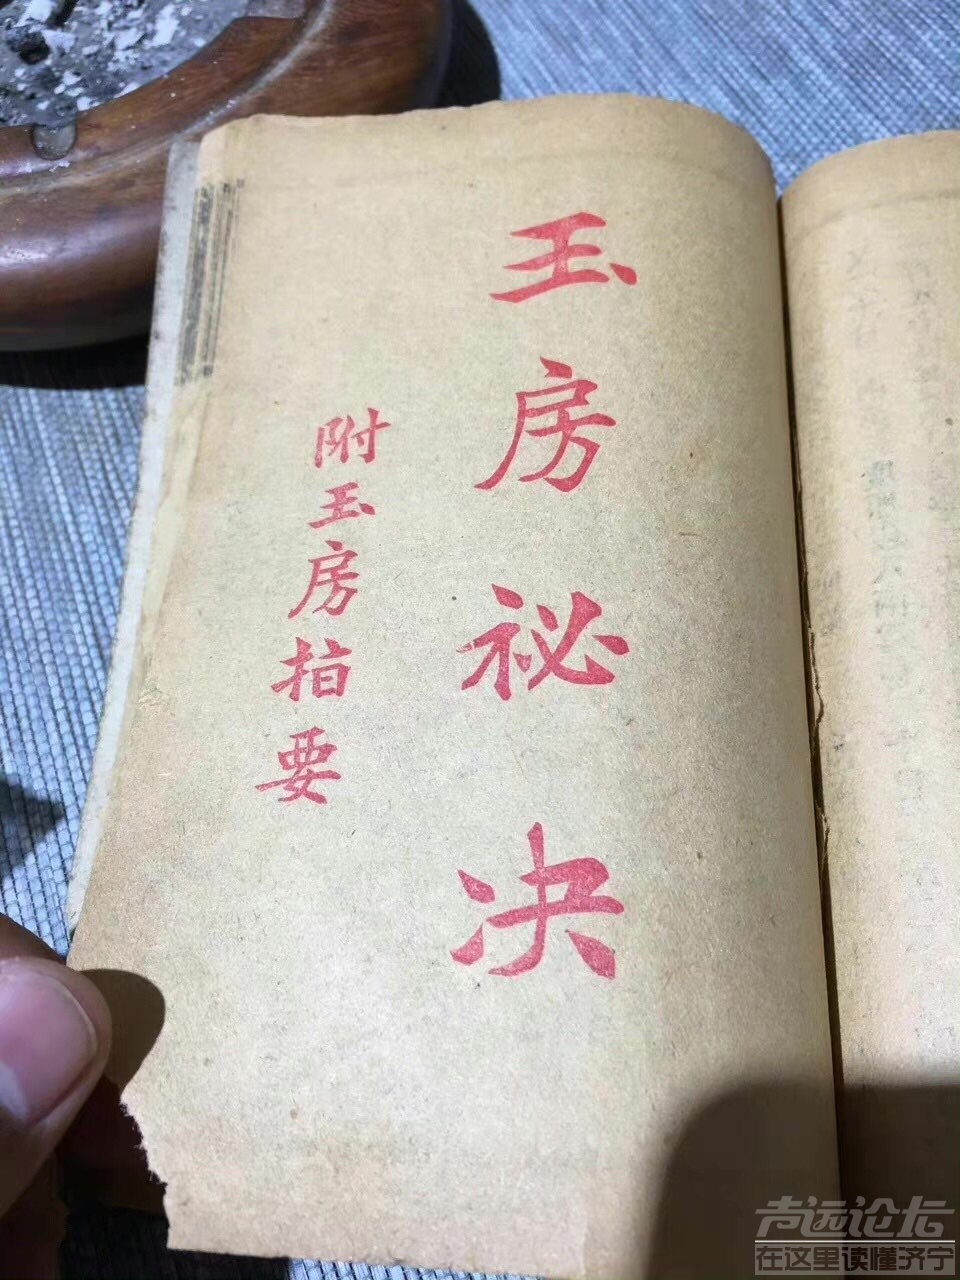 玉房祕决
附玉房指要
声远论坛
在这里读懂济宁